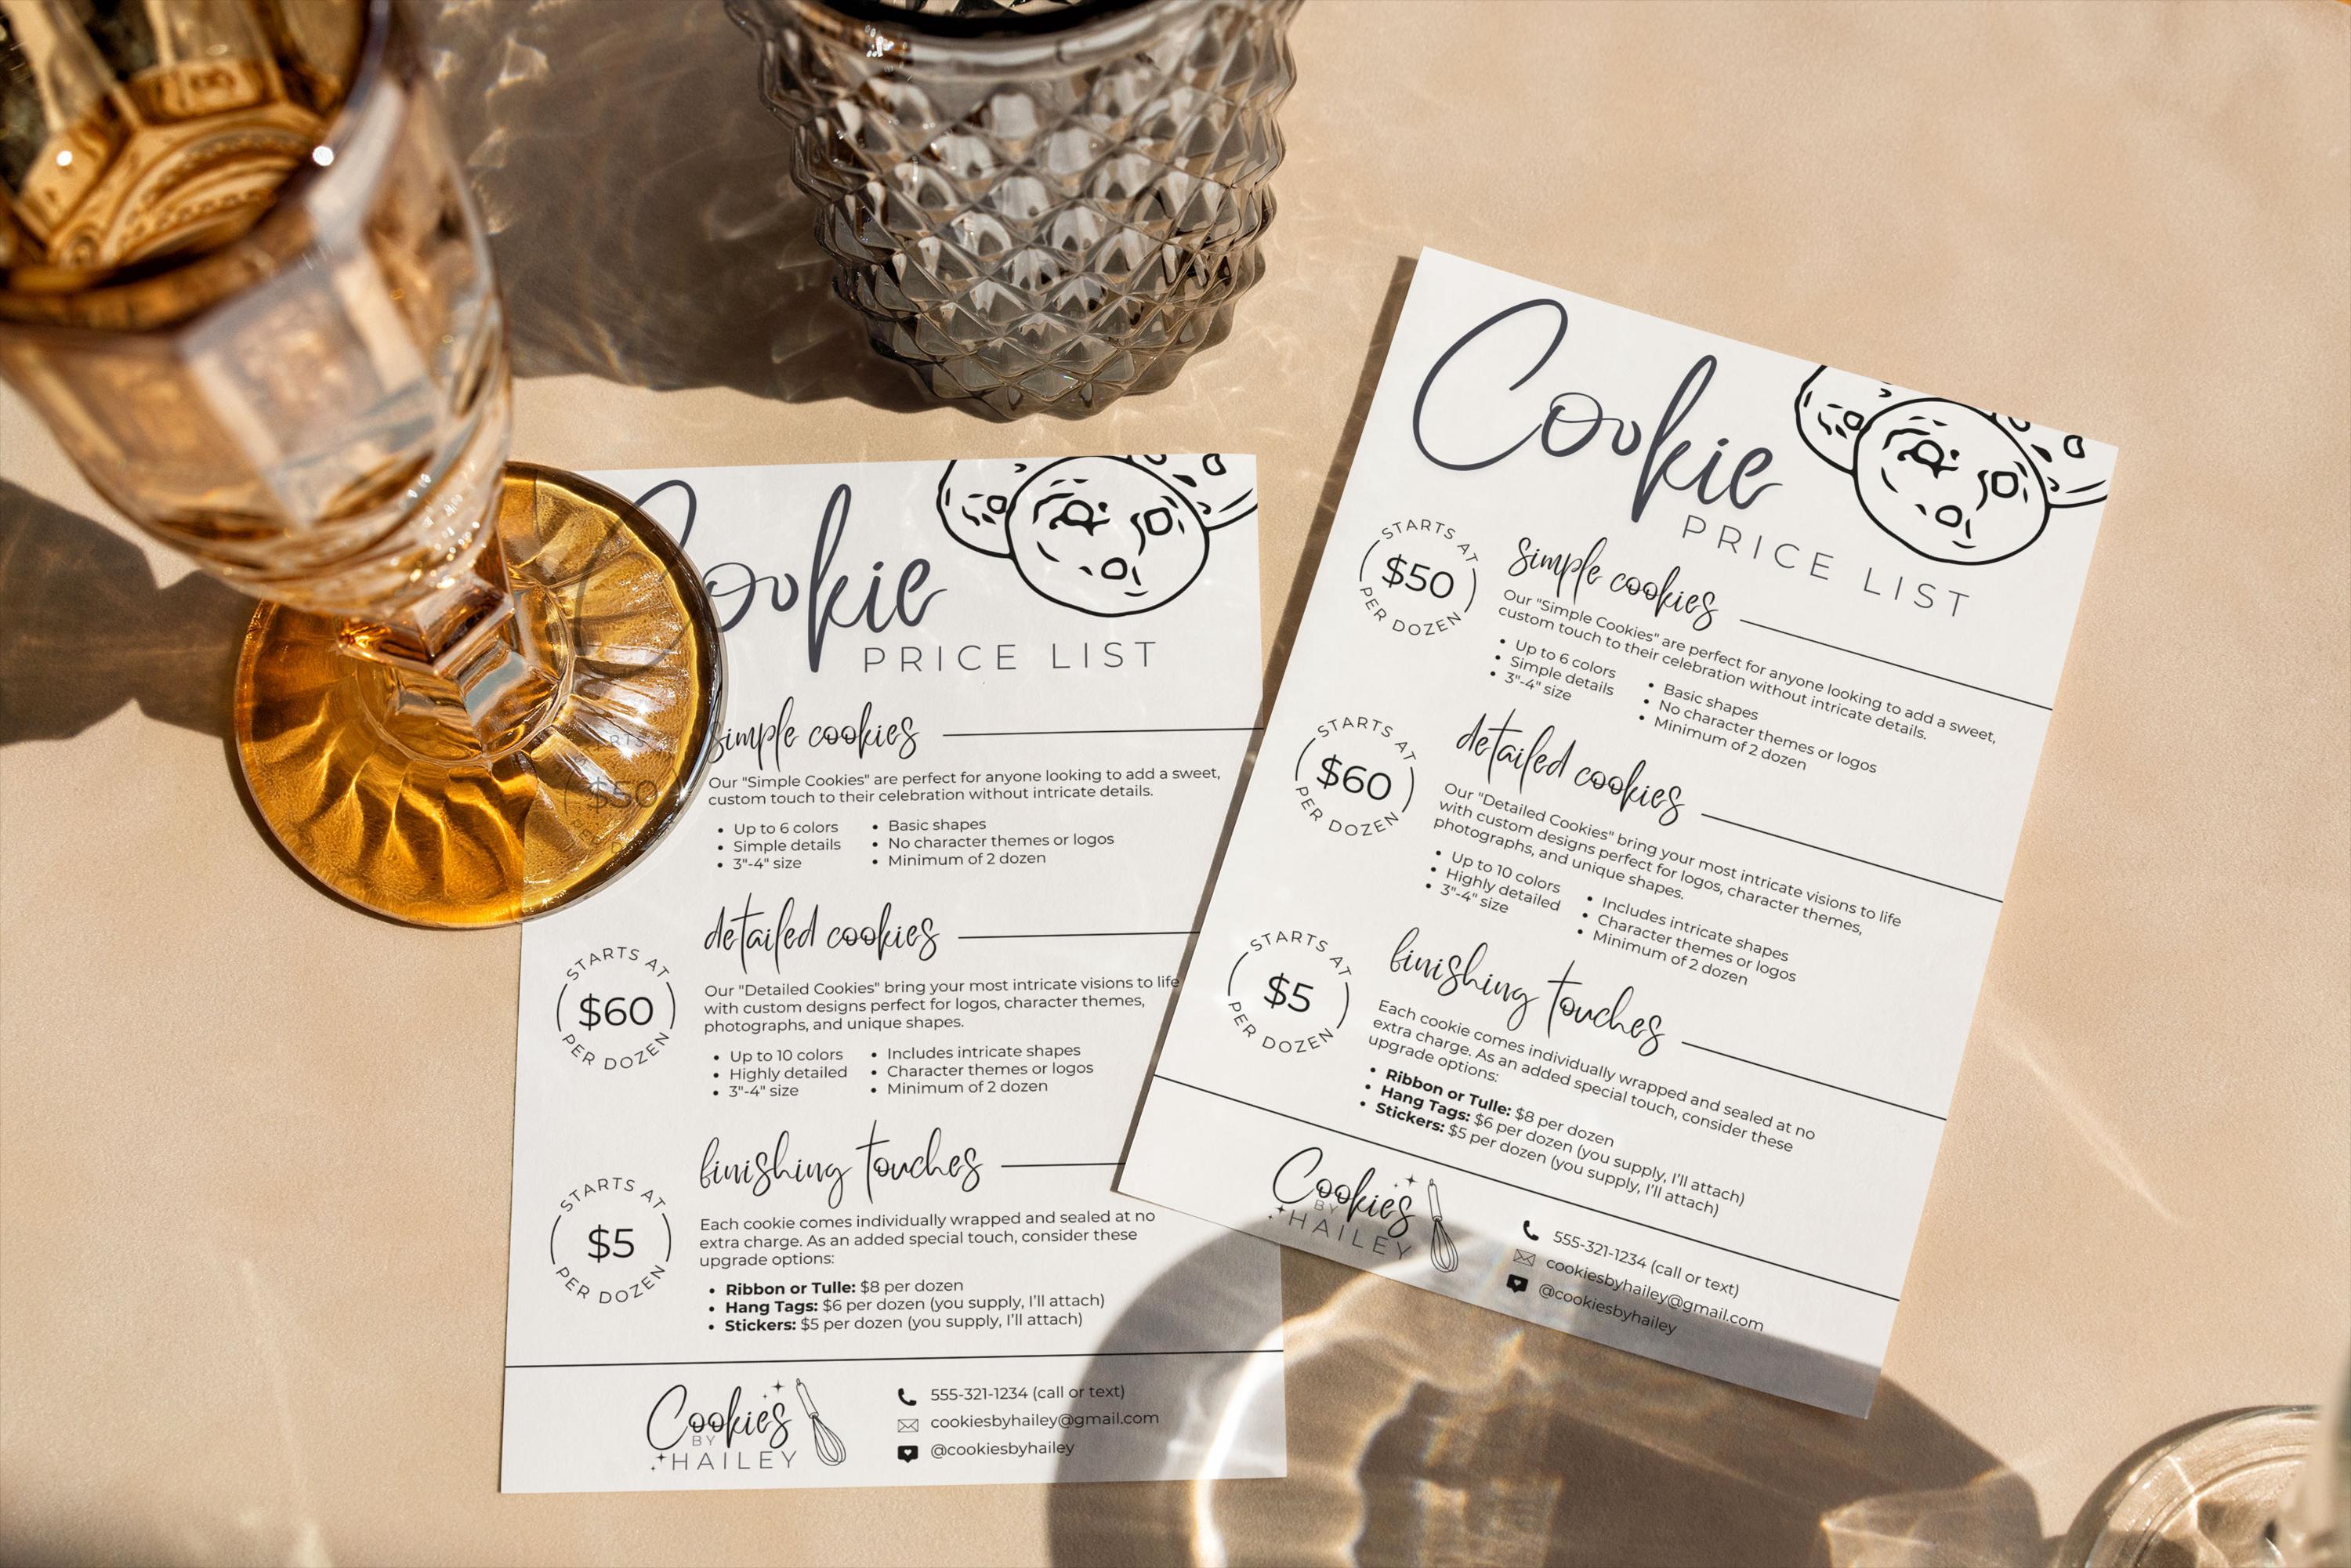 Cookie
PRICE LIST
STARTS AT
$50
PER DOZEN
simple cookies
Our "Simple Cookies" are perfect for anyone looking to add a sweet,
custom touch to their celebration without intricate details.
• Up to 6 colors
• Simple details
• 3"-4" size
• Basic shapes
• No character themes or logos
• Minimum of 2 dozen
STARTS AT
$60
PER DOZEN
detailed cookies
Our "Detailed Cookies" bring your most intricate visions to life
with custom designs perfect for logos, character themes,
photographs, and unique shapes.
• Up to 10 colors
• Highly detailed
• 3"-4" size
• Includes intricate shapes
• Character themes or logos
• Minimum of 2 dozen
STARTS AT
$5
PER DOZEN
finishing touches
Each cookie comes individually wrapped and sealed at no
extra charge. As an added special touch, consider these
upgrade options:
• Ribbon or Tulle: $8 per dozen
• Hang Tags: $6 per dozen (you supply, I'll attach)
• Stickers: $5 per dozen (you supply, I'll attach)
Cookies
BY
HAILEY
555-321-1234 (call or text)
cookiesbyhailey@gmail.com
@cookiesbyhailey
Cookie
PRICE LIST
STARTS AT
$50
PER DOZEN
simple cookies
Our "Simple Cookies" are perfect for anyone looking to add a sweet,
custom touch to their celebration without intricate details.
• Up to 6 colors
• Simple details
• 3"-4" size
• Basic shapes
• No character themes or logos
• Minimum of 2 dozen
STARTS AT
$60
PER DOZEN
detailed cookies
Our "Detailed Cookies" bring your most intricate visions to life
with custom designs perfect for logos, character themes,
photographs, and unique shapes.
• Up to 10 colors
• Highly detailed
• 3"-4" size
• Includes intricate shapes
• Character themes or logos
• Minimum of 2 dozen
STARTS AT
$5
PER DOZEN
finishing touches
Each cookie comes individually wrapped and sealed at no
extra charge. As an added special touch, consider these
upgrade options:
• Ribbon or Tulle: $8 per dozen
• Hang Tags: $6 per dozen (you supply, I'll attach)
• Stickers: $5 per dozen (you supply, I'll attach)
Cookies
BY
HAILEY
555-321-1234 (call or text)
cookiesbyhailey@gmail.com
@cookiesbyhailey